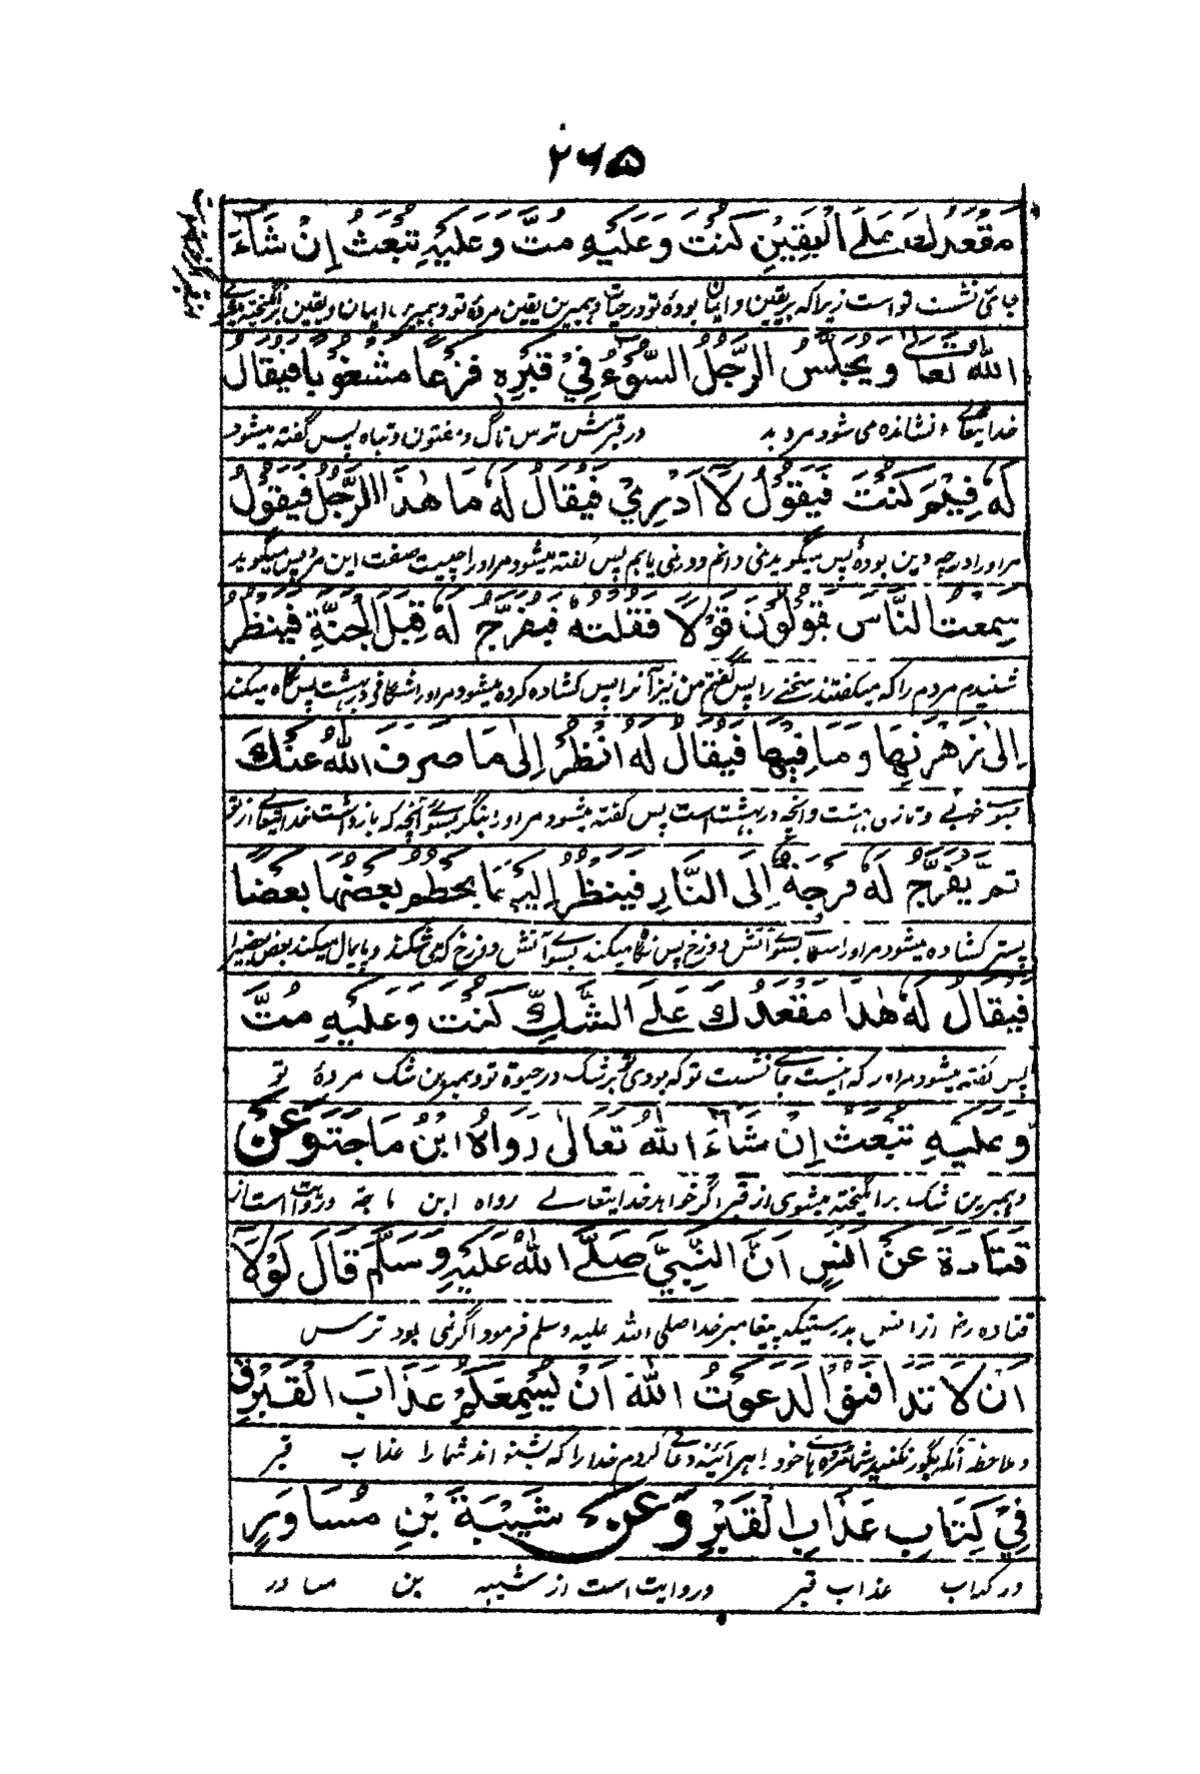 ۲۶۵
مَقْعَدُكَ عَلَى الْيَقِيْنِ كُنْتَ وَعَلَيْهِ مُتَّ وَعَلَيْهِ تُبْعَثُ اِنْ شَآءَ
جائ نشست تو است زیرا که بر یقین و ایمان بودهٔ تو در حیات و همبرین یقین مردهٔ تو و همبرین ایمان و یقین برانگیخته
اللّٰهُ تَعَالٰى وَيُجْلَسُ الرَّجُلُ السُّوْءُ فِيْ قَبْرِهٖ فَزِعًا مَشْغُوْبًا فَيُقَالُ
خدایتعالے نشانده می شود مرد بد در قبرش ترس ناک و مفتون و تباه پس گفته میشود
لَهٗ فِيْمَ كُنْتَ فَيَقُوْلُ لَآ اَدْرِيْ فَيُقَالُ لَهٗ مَا هٰذَا الرَّجُلُ فَيَقُوْلُ
مر او را در چه دین بودهٔ پس میگوید نمی دانم و در نمی یابم پس گفته میشود مر او را چیست صفت این مرد پس میگوید
سَمِعْتُ النَّاسَ يَقُوْلُوْنَ قَوْلًا فَقُلْتُهٗ فَيُفَرَّجُ لَهٗ قِبَلَ الْجَنَّةِ فَيَنْظُرُ
شنیدم مردم را که میگفتند سخنے را پس گفتم من نیز آنرا پس کشاده کرده میشود مر او را شگافی در بهشت پس نگاه میکند
اِلٰى زَهْرَتِهَا وَمَا فِيْهَا فَيُقَالُ لَهٗ اُنْظُرْ اِلٰى مَا صَرَفَ اللّٰهُ عَنْكَ
بسوے خوبی و تازگی بهشت و آنچه در بهشت است پس گفته میشود مر او را بنگر بسوے آنچه که باز داشت خدایتعالے از تو
ثُمَّ يُفَرَّجُ لَهٗ فُرْجَةٌ اِلَى النَّارِ فَيَنْظُرُ اِلَيْهَا يَحْطِمُ بَعْضُهَا بَعْضًا
پستر کشاده میشود مر او را بسوے آتش دوزخ پس نگاه میکند بسوے آتش دوزخ که می شکند و پایمال میکند بعض بعضے را
فَيُقَالُ لَهٗ هٰذَا مَقْعَدُكَ عَلَى الشَّكِّ كُنْتَ وَعَلَيْهِ مُتَّ
پس گفته میشود مر او را که اینست جاے نشست تو که بودی تو بر شک در حیوة تو و همبرین شک مردهٔ تو
وَعَلَيْهِ تُبْعَثُ اِنْ شَآءَ اللّٰهُ تَعَالٰى رَوَاهُ ابْنُ مَاجَةَ وَعَنْ
و همبرین شک برانگیخته میشوی از قبر اگر خواهد خدایتعالے رواه ابن ماجة و روایت است از
قَتَادَةَ عَنْ اَنَسٍ اَنَّ النَّبِيَّ صَلَّى اللّٰهُ عَلَيْهِ وَسَلَّمَ قَالَ لَوْلَا
قتاده رض از انس بدرستیکه پیغامبر خدا صلی الله علیه وسلم فرمود اگر نمی بود ترس
اَنْ لَا تَدَافَنُوْا لَدَعَوْتُ اللّٰهَ اَنْ يُسْمِعَكُمْ عَذَابَ الْقَبْرِ
و ملاحظه آنکه بگور نکنید شما مرده هاے خود را هر آئینه دعا میکردم خدا را که بشنواند شما را عذاب قبر
فِيْ كِتَابِ عَذَابِ الْقَبْرِ وَعَنْ شَيْبَةَ بْنِ مُسَاوِرٍ
در کتاب عذاب قبر و روایت است از شیبه بن مساور